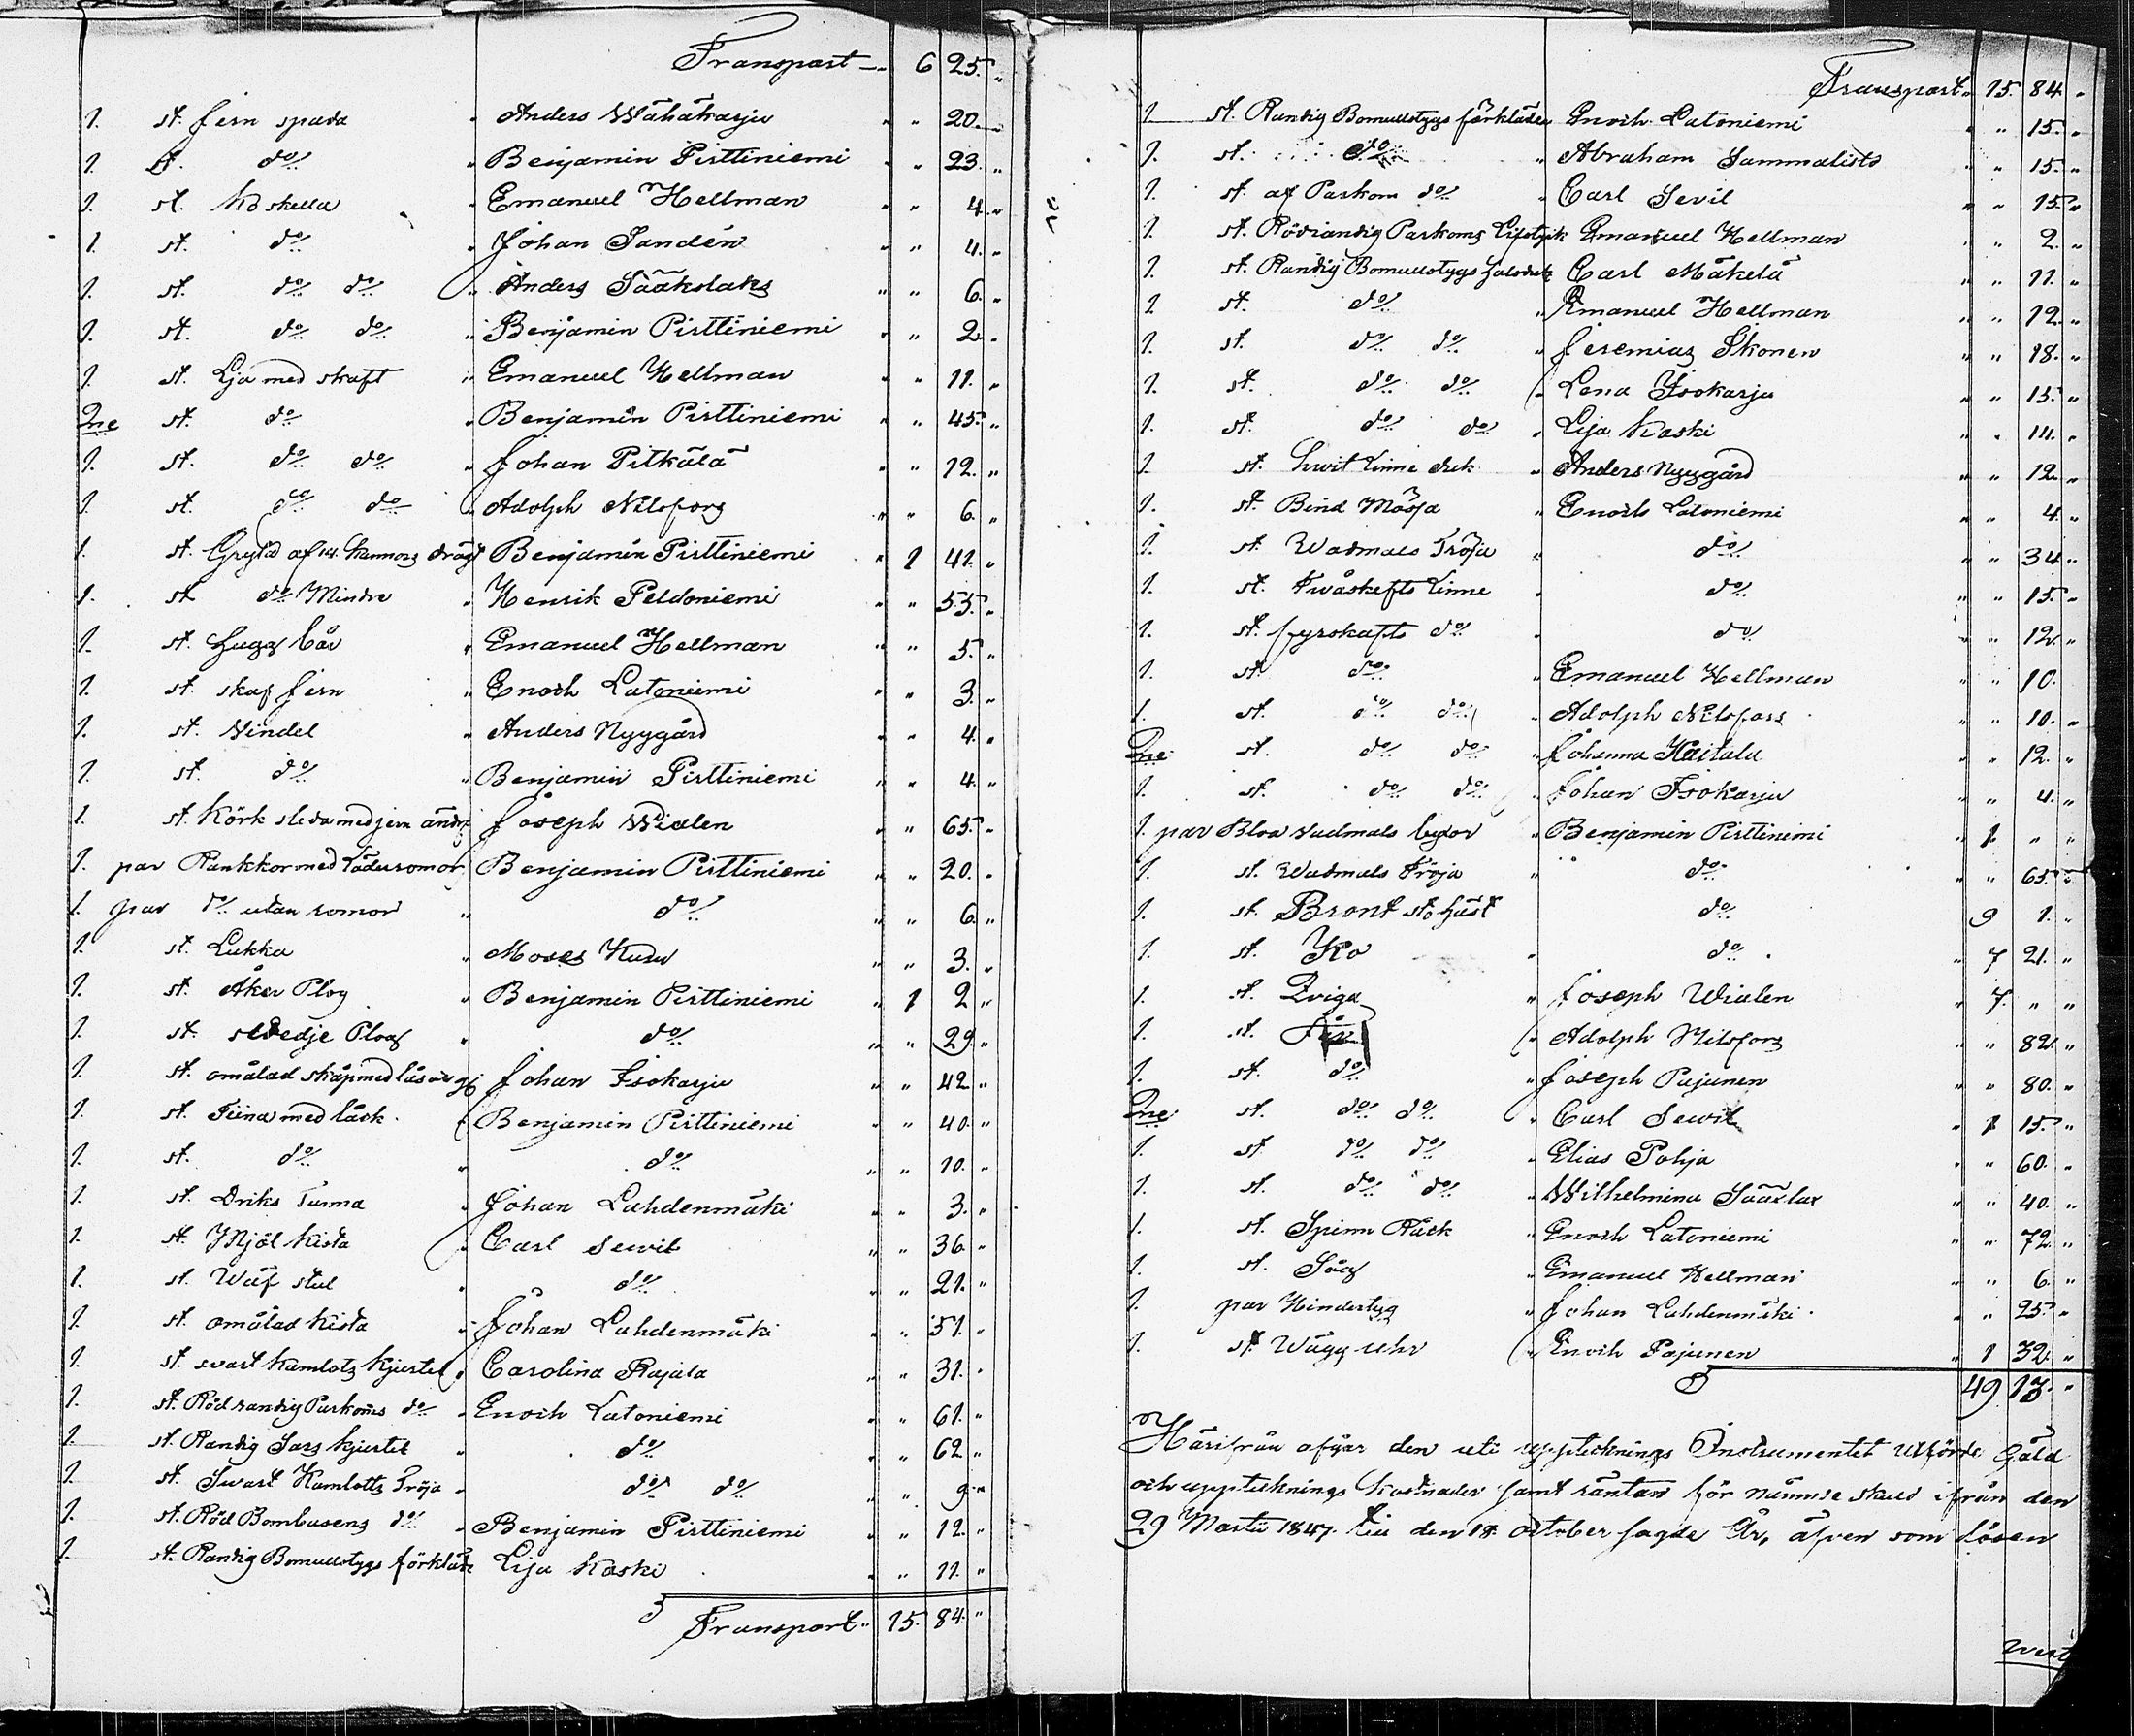 Transport 6 25. "
1. st. Jern spada " Anders Wähäkarju " " 20. "
1. st. do " Benjamin Pirttiniemi " " 23. "
1. st. Koskella " Emanuel Hellman " " 4. "
1. st. do " Johan Sandén " " 4. "
1. st. do do " Anders Sääkslaks " " 6. "
1. st. do do " Benjamin Pirttiniemi " " 2. "
1. st. Lja med skaft " Emanuel Hellman " " 11. "
2ne st. do " Benjamin Pirttiniemi " " 45. "
1. st. do do " Johan Pitkälä " " 12. "
1. st. do do " Adolph Nilsfors " " 6. "
1. st. Gryta af 14. Kannors drägt Benjamin Pirttiniemi " 1 41. "
1. st. do Mindre " Henrik Peldoniemi " " 53. "
1. st. Hugg bår " Emanuel Hellman " " 5. "
1. st. skaf Jern " Enoch Latoniemi " " 3. "
1. st. Vindel " Anders Nyygård " " 4. "
1. st. do " Benjamin Pirttiniemi " " 4. "
1. st. Körk sleda med jern ändr Joseph Wialen " " 65. "
1. par Rankkor med Läderromor Benjamin Pirttiniemi " " 20. "
1. par do utan romor " do " " 6. "
1. st. Lukka " Moses Kuru " " 3. "
1. st. Åker Plog " Benjamin Pirttiniemi " 1 2 "
1. st. svedje Plog " do " " 29. "
1. st. omålad skåp med lås Johan Isokarju " " 42 "
1. st. Tiina med låck " Benjamin Pirttiniemi " " 40. "
1. st. do " do " " 10. "
1. st. Driks Tunna " Johan Lahdenmäki " " 3. "
1. st. Mjöl Kista " Carl Sewil " " 36 "
1. st. Wäf stol " do " " 21. "
1. st. omålad Kista " Johan Lahdenmäki " " 51. "
1. st. svart Kamlots Kjortel " Carolina Rajala " " 31. "
1. st. Röd randig Parkoms do " Enoch Latoniemi " " 61. "
1. st. Randig Sars Kjortel " do " " 62 "
1. st. Swart Kamlotts Tröja " do do " " 9 "
1. st. Röd Bombasens do " Benjamin Pirttiniemi " " 12. "
1. st. Randig Bomullstygs förkläde Lisa Kaski " " 11. "
Transport " 15. 84. "
Transport " 15. 84. "
1 st. Randig Bomullstygs förkläde Enoch Latoniemi " " 15. "
1. st. do " Abraham Sammalisto " " 15. "
1. st. af Parkom do " Carl Sevil " " 15. "
1. st. Rödrandig Parkoms Lifstyck Emanuel Hellman " " 2. "
1. st. Randig Bomullstygs halsduk Carl Mäkelä " " 11. "
1 st. do " Emanuel Hellman " " 12. "
1. st. do do " Jeremias Ikonen " " 18. "
1. st. do do " Lena Isokarju " " 15. "
1. st. do do " Lisa Kaski " " 14. "
1. st. hwit Linne duk " Anders Nyygård " " 12. "
1. st. Bind Mössa " Enoch Latoniemi " " 4. "
1. st. Wadmals Tröja " do " " 34. "
1. st. Twåskefts Linne " do " " 15. "
1. st. fyrskafts do " do " " 12. "
1. st. do " Emanuel Hellman " " 10.
1. st. do do " Adolph Nilsfors " " 10. "
2ne st. do do " Johanna Haitala " " 12. "
1. st. do do " Johan Isokarju " " 4. "
1. par Bloa vadmals byxor " Benjamin Pirttiniemi " 1. " "
1. st. Wadmals Tröja " do " " 65. "
1. st. Brunt sto häst do 9 1. "
1. st. Ko " do " 7 21. "
1. st. Qviga " Joseph Wialen " 7. " "
1. st. Får " Adolph Nilsfors " " 82. "
1. st. do " Joseph Pajunen " " 80. "
2ne st. do do " Carl Sewil " 1 15. "
1. st. do do " Elias Pohja " " 60. "
1. st. do do " Wilhelmina Sääxlax " " 40. "
1. st. Spinn Råck " Enoch Latoniemi " " 72. "
1. st. Såg " Emanuel Hellman " " 6. "
1. par Hindertyg " Johan Lahdenmäki " " 25. "
1. st. Wägg Uhr " Enoch Pajunen " 1 32. "
49 13. "
Härifrån afgår den uti uppteknings Instrumentet utförde Gäld
och uppteknings kostnader samt räntan för nämnde skuld ifrån den
29 Martii 1847. till den 18. October sagde År, äfven som lösen